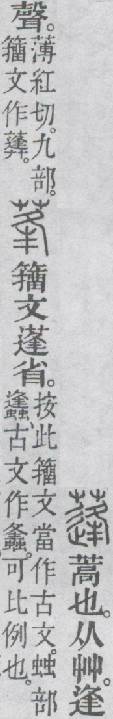 蓬蒿也。从艸。逢
聲。
薄紅切。九部。
籒文作莑。
莑籒文蓬省。
按此籒文當作古文。䖵部
蠭、古文作𧒒。可比例也。